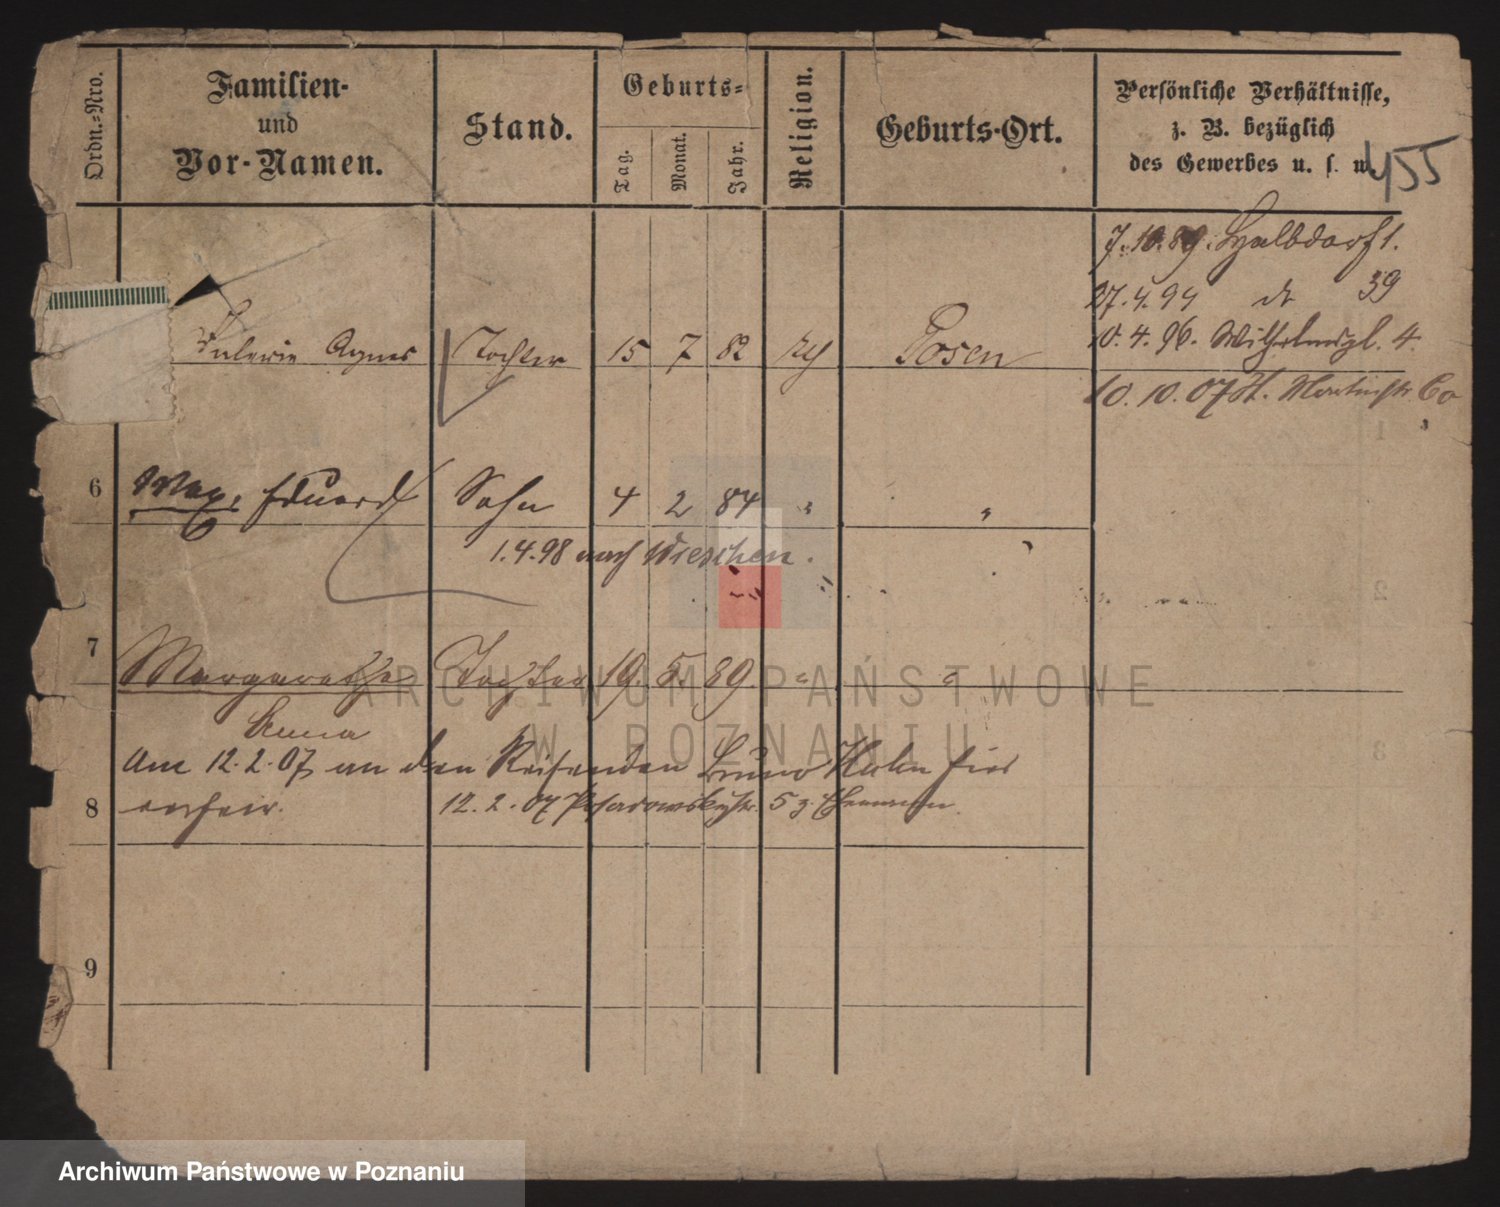 Ordn.-Nro.
Familien-
und
Vor-Namen.
Stand.
Geburts-
Tag.
Monat.
Jahr.
Religion.
Geburts-Ort.
Persönliche Verhältnisse,
z. B. bezüglich
des Gewerbes u. s. w.
455
7.10.89. Halbdorfst.
27.4.94 do 39
Valerie Agnes Tochter 15 7 82 Posen
10.4.96. Wilhelmspl. 4.
10.10.07 St. Martinstr. 60
6 Max, Eduard Sohn 4 2 84 " "
1.4.98 nach Pleschen.
7 Margarethe Tochter 19. 5. 89. " "
Anna
Am 12.2.07 an den Reisenden Bruno Hahn hier
8 12.2.07 Posadowskystr. 5 z. Ehemann.
9
ARCHIWUM PAŃSTWOWE
W POZNANIU
Archiwum Państwowe w Poznaniu